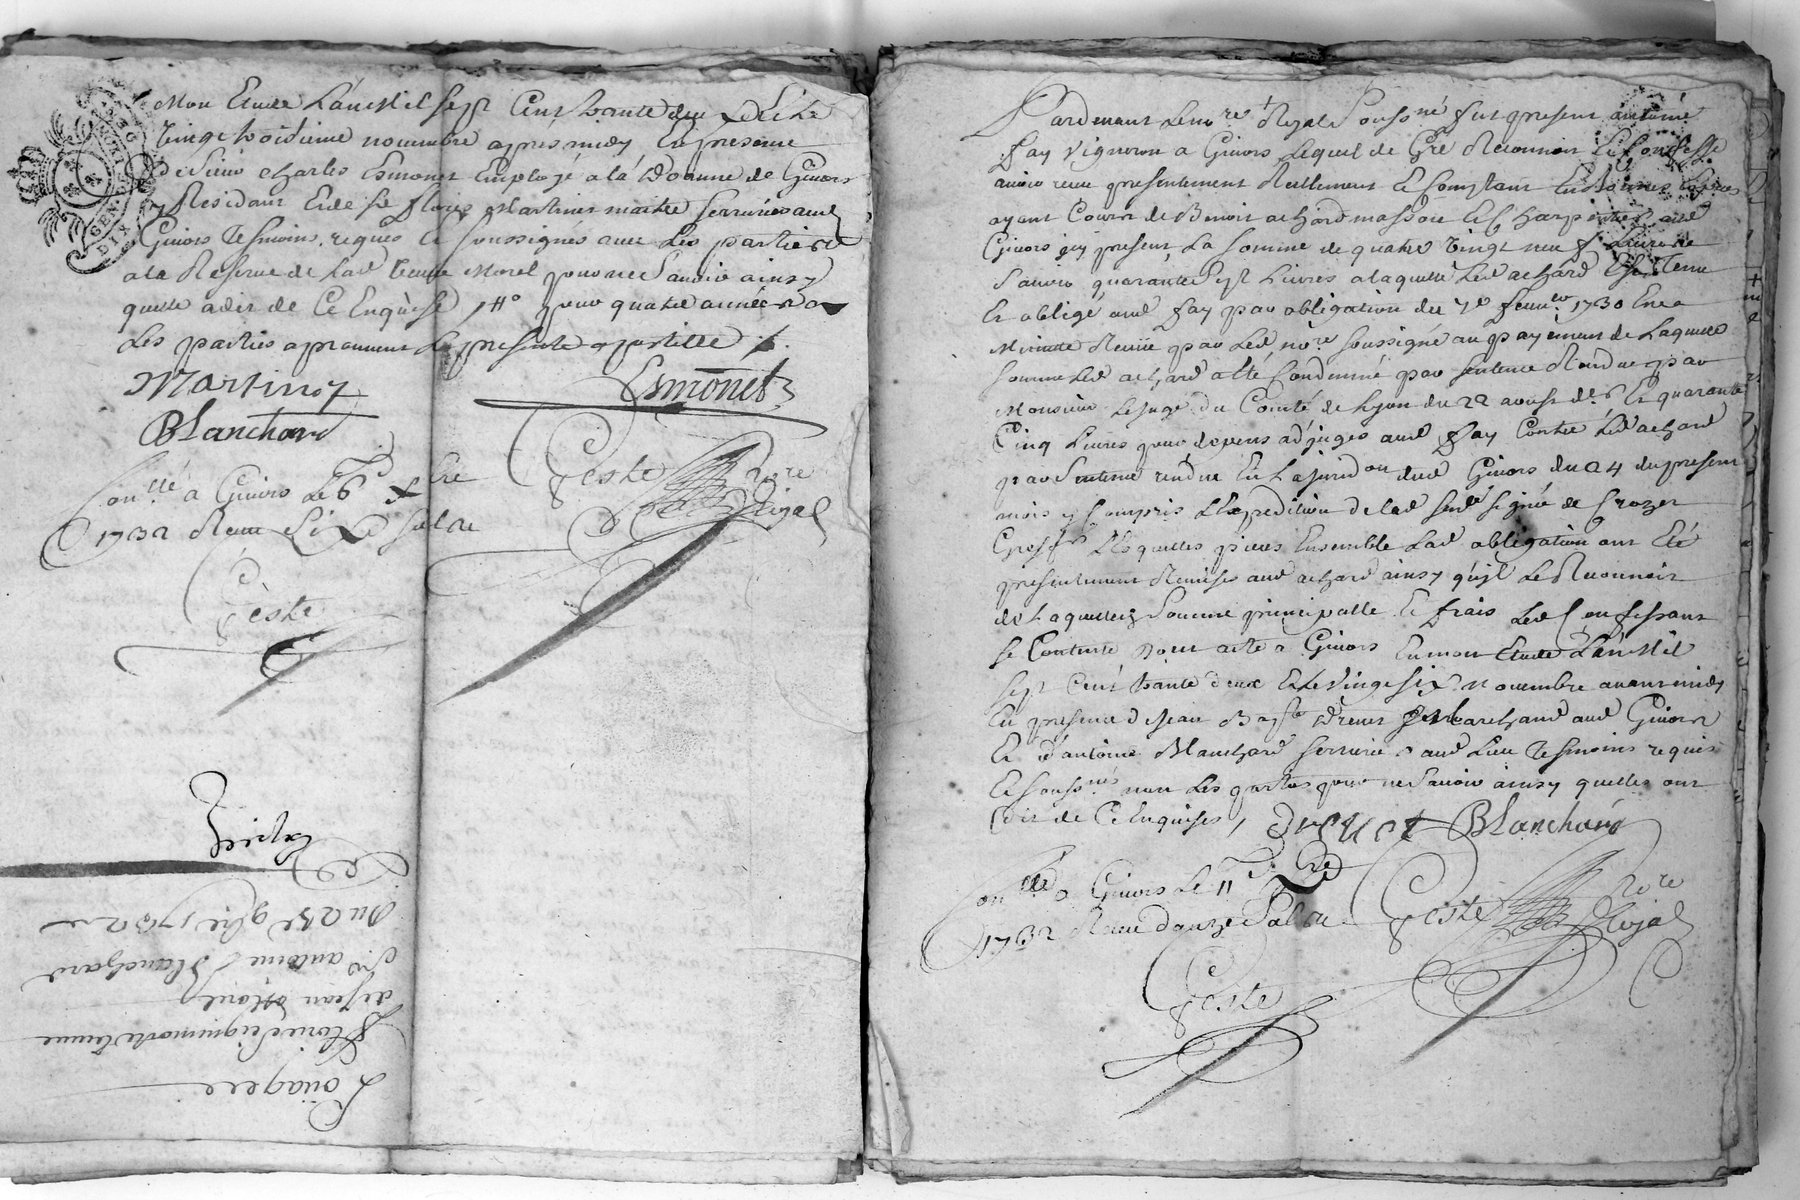 Mon Etude L'an Mil sept Cent trante deux & Le
vingt troisieme novembre apres midy En presence
de Sieur Charles Esmonet Employé a la Doanne de Givors
y Residant Et de Sr Martinot maitre serrurier aud
Givors Tesmoins requis & soussignés avec Les parties
a la Reserve de Lad veuve Morel pour ne Savoir ainsy
quelle a dit de Ce Enquise pour quatre années
Les parties aprouvent Le presente apostille
Martinot
Esmonet
Blanchard
Geste
No.re Royal
Con.llé a Givors Le 6e Xbre
1732 Receu Six s
Geste
Expié
Du 23e 9bre 1732
Sr antoine Blanchard
de Jean Morel
veuve
Loüagere
Pardevant Le no.re Royal Soussné fut present antoine
Fay vigneron a Givors Lequel de Gré Reconnoit Et Confesse
avoir receu presentement Reellement Et Comptant En
ayant Cours de Benoit achard masson Et Charpentier aud
Givors icy present La somme de quatre vingt
Savoir quarante sept Livres a laquelle Led achard
Et obligé aud Fay par obligation du 7e 1730
Minutte Receüe par Led no.re soussigné au payement de Laquelle
somme Led achard a été Condemné par sentence Rendue par
Monsieur Le Juge du Comté de Lyon du 22 aoust de Et quarante
Cinq Livres pour depens adjuges aud Fay Contre Led achard
par Sentence rendue En La jurid.on dud Givors du 24 du present
mois y Compris L'Expedition de lad signée de Crozet
Greff Lesquelles pieces Ensemble Lad obligation ont Eté
presentement Remises aud achard ainsy qu'il Le Reconnoit
de Laquelle Somme principalle Et frais Led Confessant
se Contente Dont acte a Givors En mon Etude L'an Mil
sept Cent trante deux Et Le vingt six novembre avant midy
En presence de Jean Bapte Drevet Marchand aud Givors
Et d'antoine Blanchard serrurier aud Lieu Tesmoins requis
Et souss.nés non Les parties pour ne Savoir ainsy quelles ont
dit de Ce Enquises,
Drevet Blanchard
Con.llé a Givors Le 11e Xbre
1732 Receu
Geste
No.re
Royal
Geste